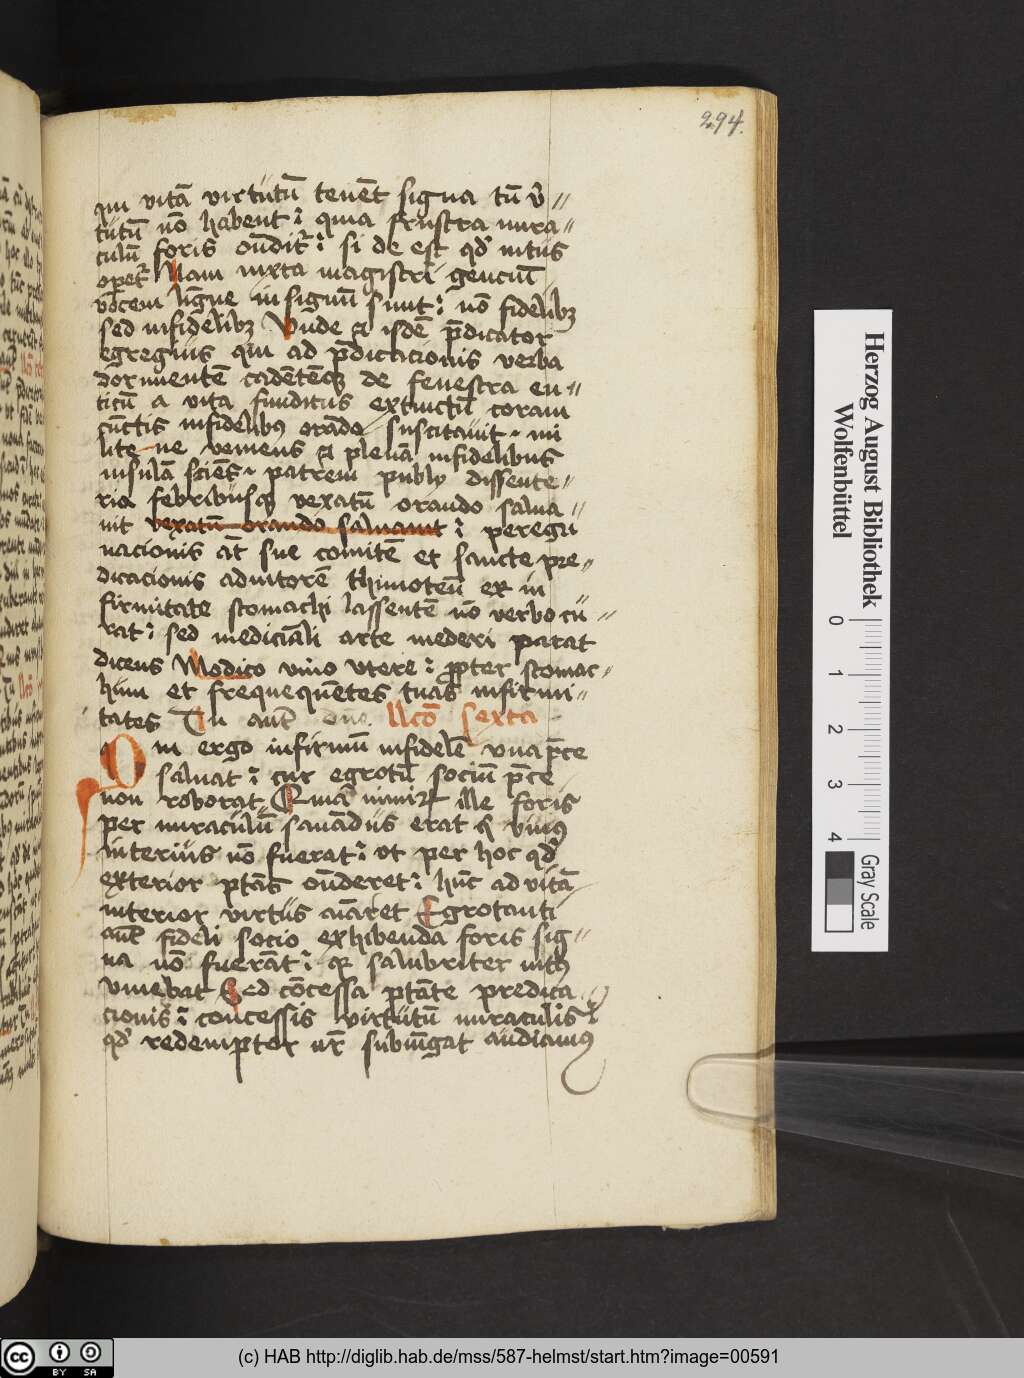 294.
qui vitā virtutū tenēt signa tū v̄//
tutū nō habent: quia frustra mira//
culū foris ōndit᷑: si de est qd̕ intus
operet᷑ Nam iuxta magistri genciū
vocem ligne in signū sunt: nō fidelibꝫ
sed infidelibꝫ Vnde et isdē p̄dicator
egregius qui ad p̄dicacionis verba
dormientē cadētēqꝫ de fenestra eu//
ticū a vita funditus extinctū coram
cūctis infidelibꝰ orādo suscitauit mi
lite ne veniens et plenā infidelibus
insulā sciēs patrem publij dissente//
ria febribusqꝫ vexatū orando salua//
uit vexatū orando saluauit: peregri
nacionis āt sue comitē et sancte pre//
dicacionis adiutorē thimoteū ex in
firmitate stomachi lassentē nō verbo cu//
rat: sed medicīali arte mederi parat
dicens Modico vino vtere: ꝓpter stomac//
hum et frequequētes tuas infirmi//
tates Tu aut̄ dn̄e. Lc̄o sexta
Q m ergo infirmū infidelē vna p̄ce
saluat: cur egrotū sociū p̄ce
non roborat Quia nimirꝝ ille foris
per miraculū sanādus erat qͥ viuꝰ
interius nō fuerat: vt per hoc qd̕
exterior ptās ōnderet: hūc ad vitā
interior virtus aīaret Egrotanti
aut̄ fideli socio exhibenda foris sig//
na nō fuerāt: qꝛ salubriter intꝰ
viuebat Sed cōcessa ptāte predica
cionis: concessis virtutū miraculis:
qd̕ redemptor nr̄ subiūgat audiamꝰ
Herzog August Bibliothek
Wolfenbüttel
0 1 2 3 4
Gray Scale
cc BY SA
(c) HAB http://diglib.hab.de/mss/587-helmst/start.htm?image=00591